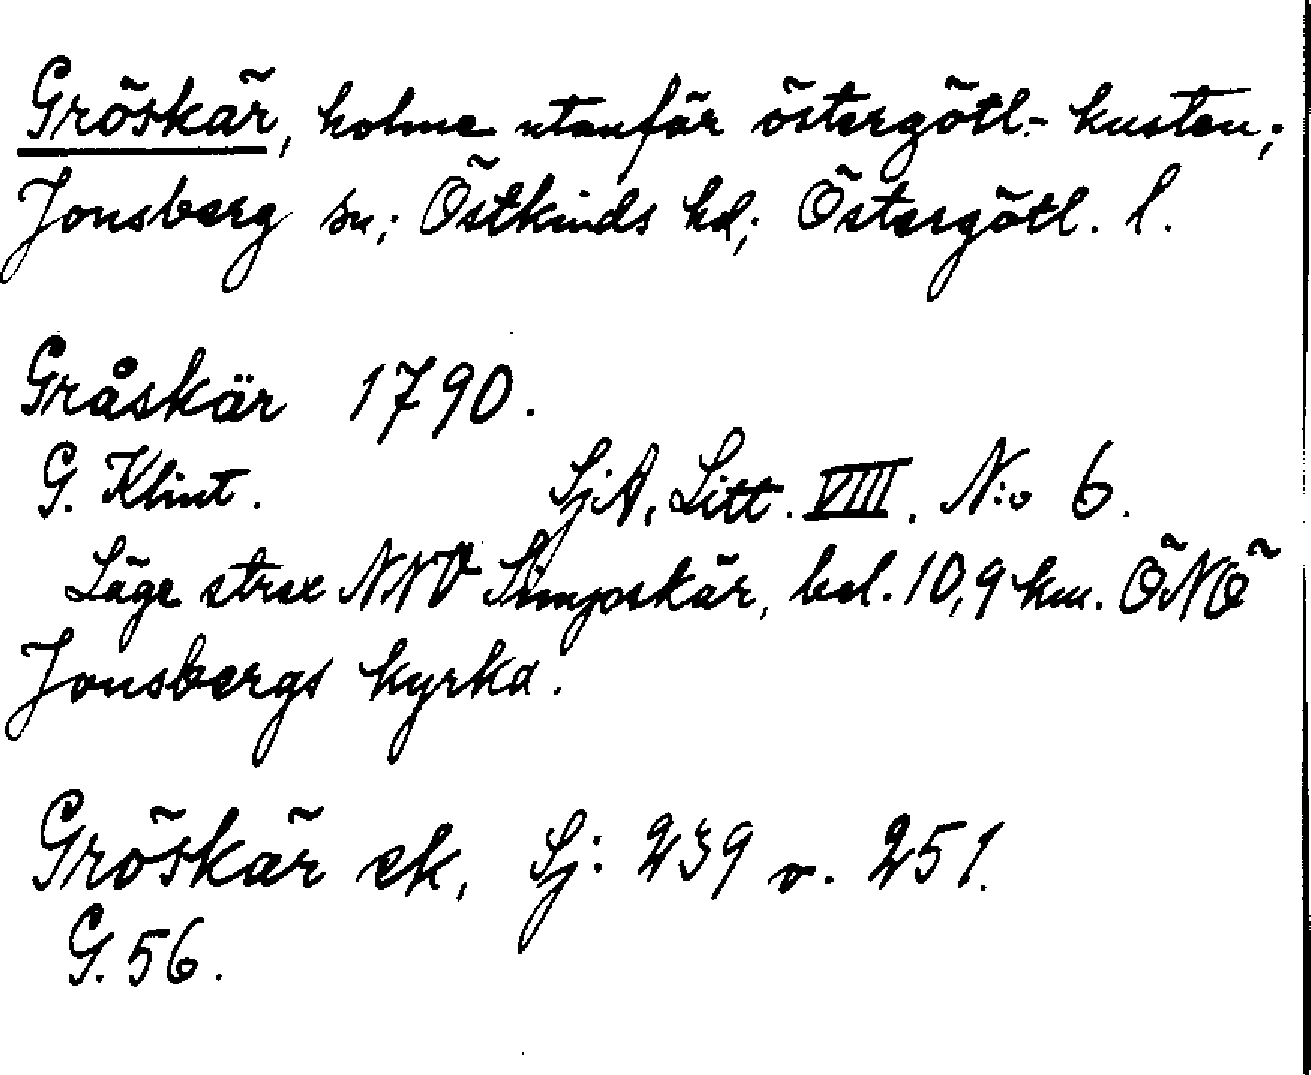 Gröskär, holme utanför östergötl.- kusten;
Jonsberg sn; Östkinds hd; Östergötl. l.
Gråskär 1790.
G. Klint. SjA, Litt. VIIII. N:o 6.
Läge strax NNV Limposkär, bel. 10,9 km. ÖNÖ
Jonsbergs kyrka.
Gröskär ek, Sj: 239 o. 251.
G. 56.